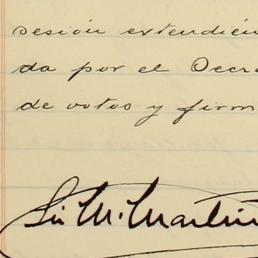 sesión extendién
da por el Decr
de votos y firm
M. Martin